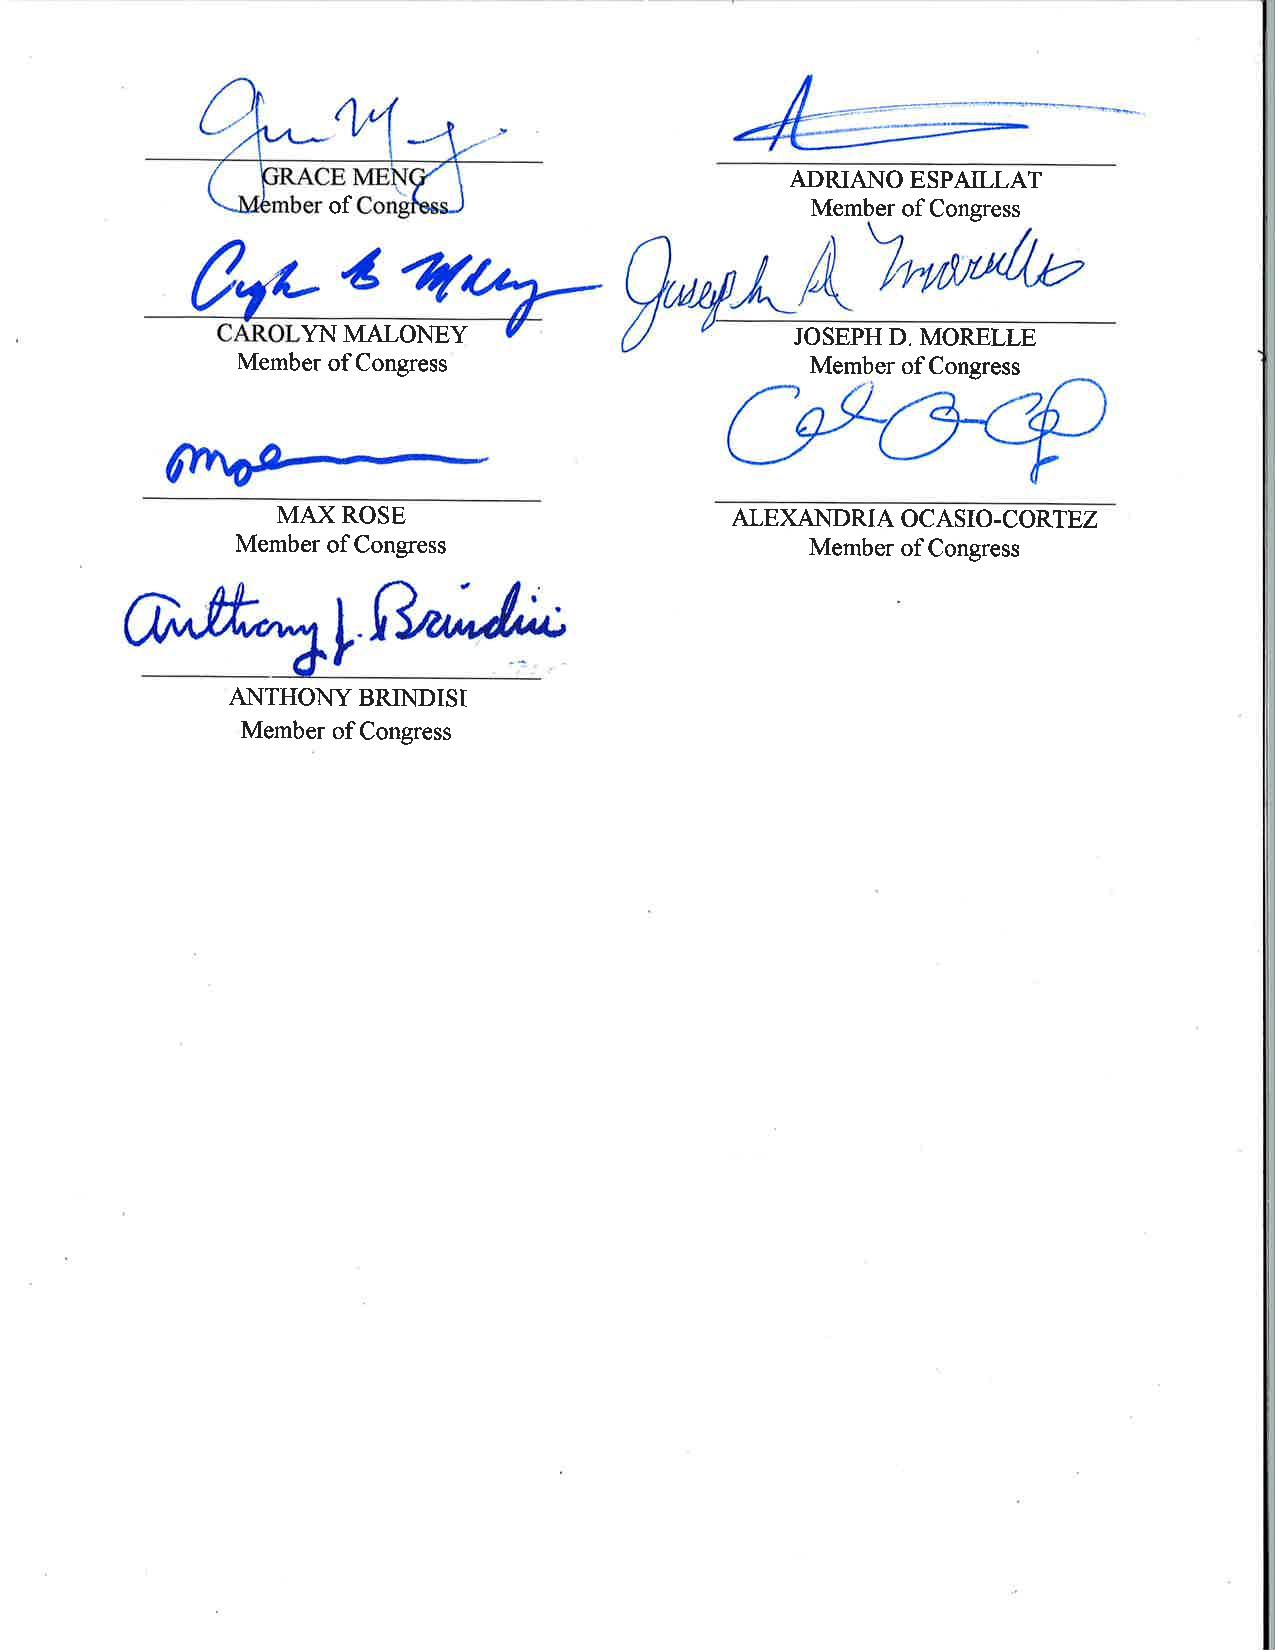 GRACE MENG
Member of Congress
ADRIANO ESPAILLAT
Member of Congress
Joseph D Morelle
CAROLYN MALONEY
Member of Congress
JOSEPH D. MORELLE
Member of Congress
MAX ROSE
Member of Congress
ALEXANDRIA OCASIO-CORTEZ
Member of Congress
Anthony J. Brindisi
ANTHONY BRINDISI
Member of Congress